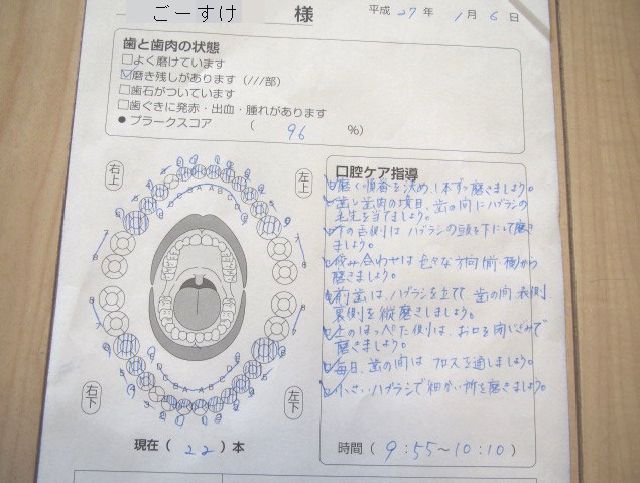 ごーすけ 様
平成 27 年 1 月 6 日
歯と歯肉の状態
□よく磨けています
☑磨き残しがあります（///部）
□歯石がついています
□歯ぐきに発赤・出血・腫れがあります
●プラークスコア （ 96 %）
右上
左上
口腔ケア指導
磨く順番を決め、1本ずつ磨きましょう。
歯と歯肉の境目、歯の間にハブラシの
毛先を当てましょう。
下の舌側は ハブラシの頭を下にして磨き
ましょう。
咬み合わせは 色々な方向(前・横)から
磨きましょう。
前歯は、ハブラシを立てて、歯の間、表側、
裏側を縦磨きしましょう。
上のほっぺた側は、お口を閉じぎみで
磨きましょう。
毎日、歯の間は フロスを通しましょう。
小さいハブラシで細かい所を磨きましょう。
右下
左下
現在（ 22 ）本
時間（ 9:55～10:10 ）